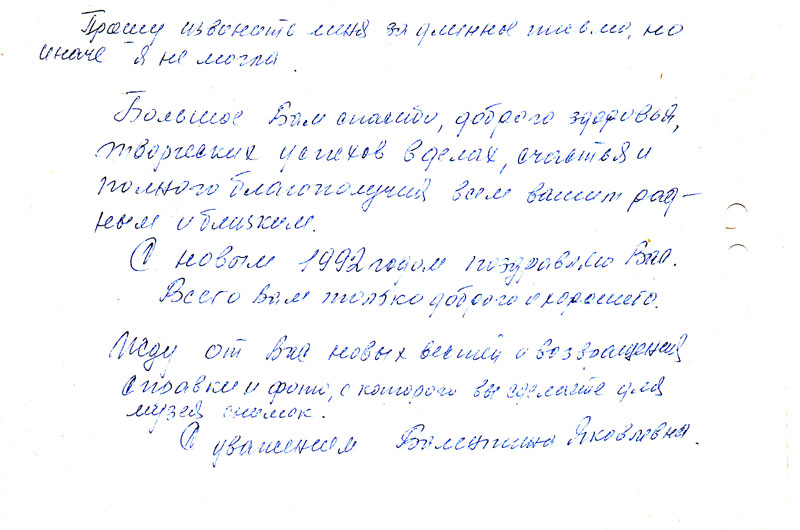 Прошу извинить меня за длинное письмо, но
иначе я не могла.
Большое Вам спасибо, доброго здоровья,
творческих успехов в делах, счастья и
полного благополучия всем вашим род-
ным и близким.
С новым 1992 годом поздравляю Вас.
Всего Вам только доброго и хорошего.
Жду от Вас новых вестей и возвращений
справки и фото, с которого вы сделаете для
музея снимок.
С уважением Валентина Яковлевна.